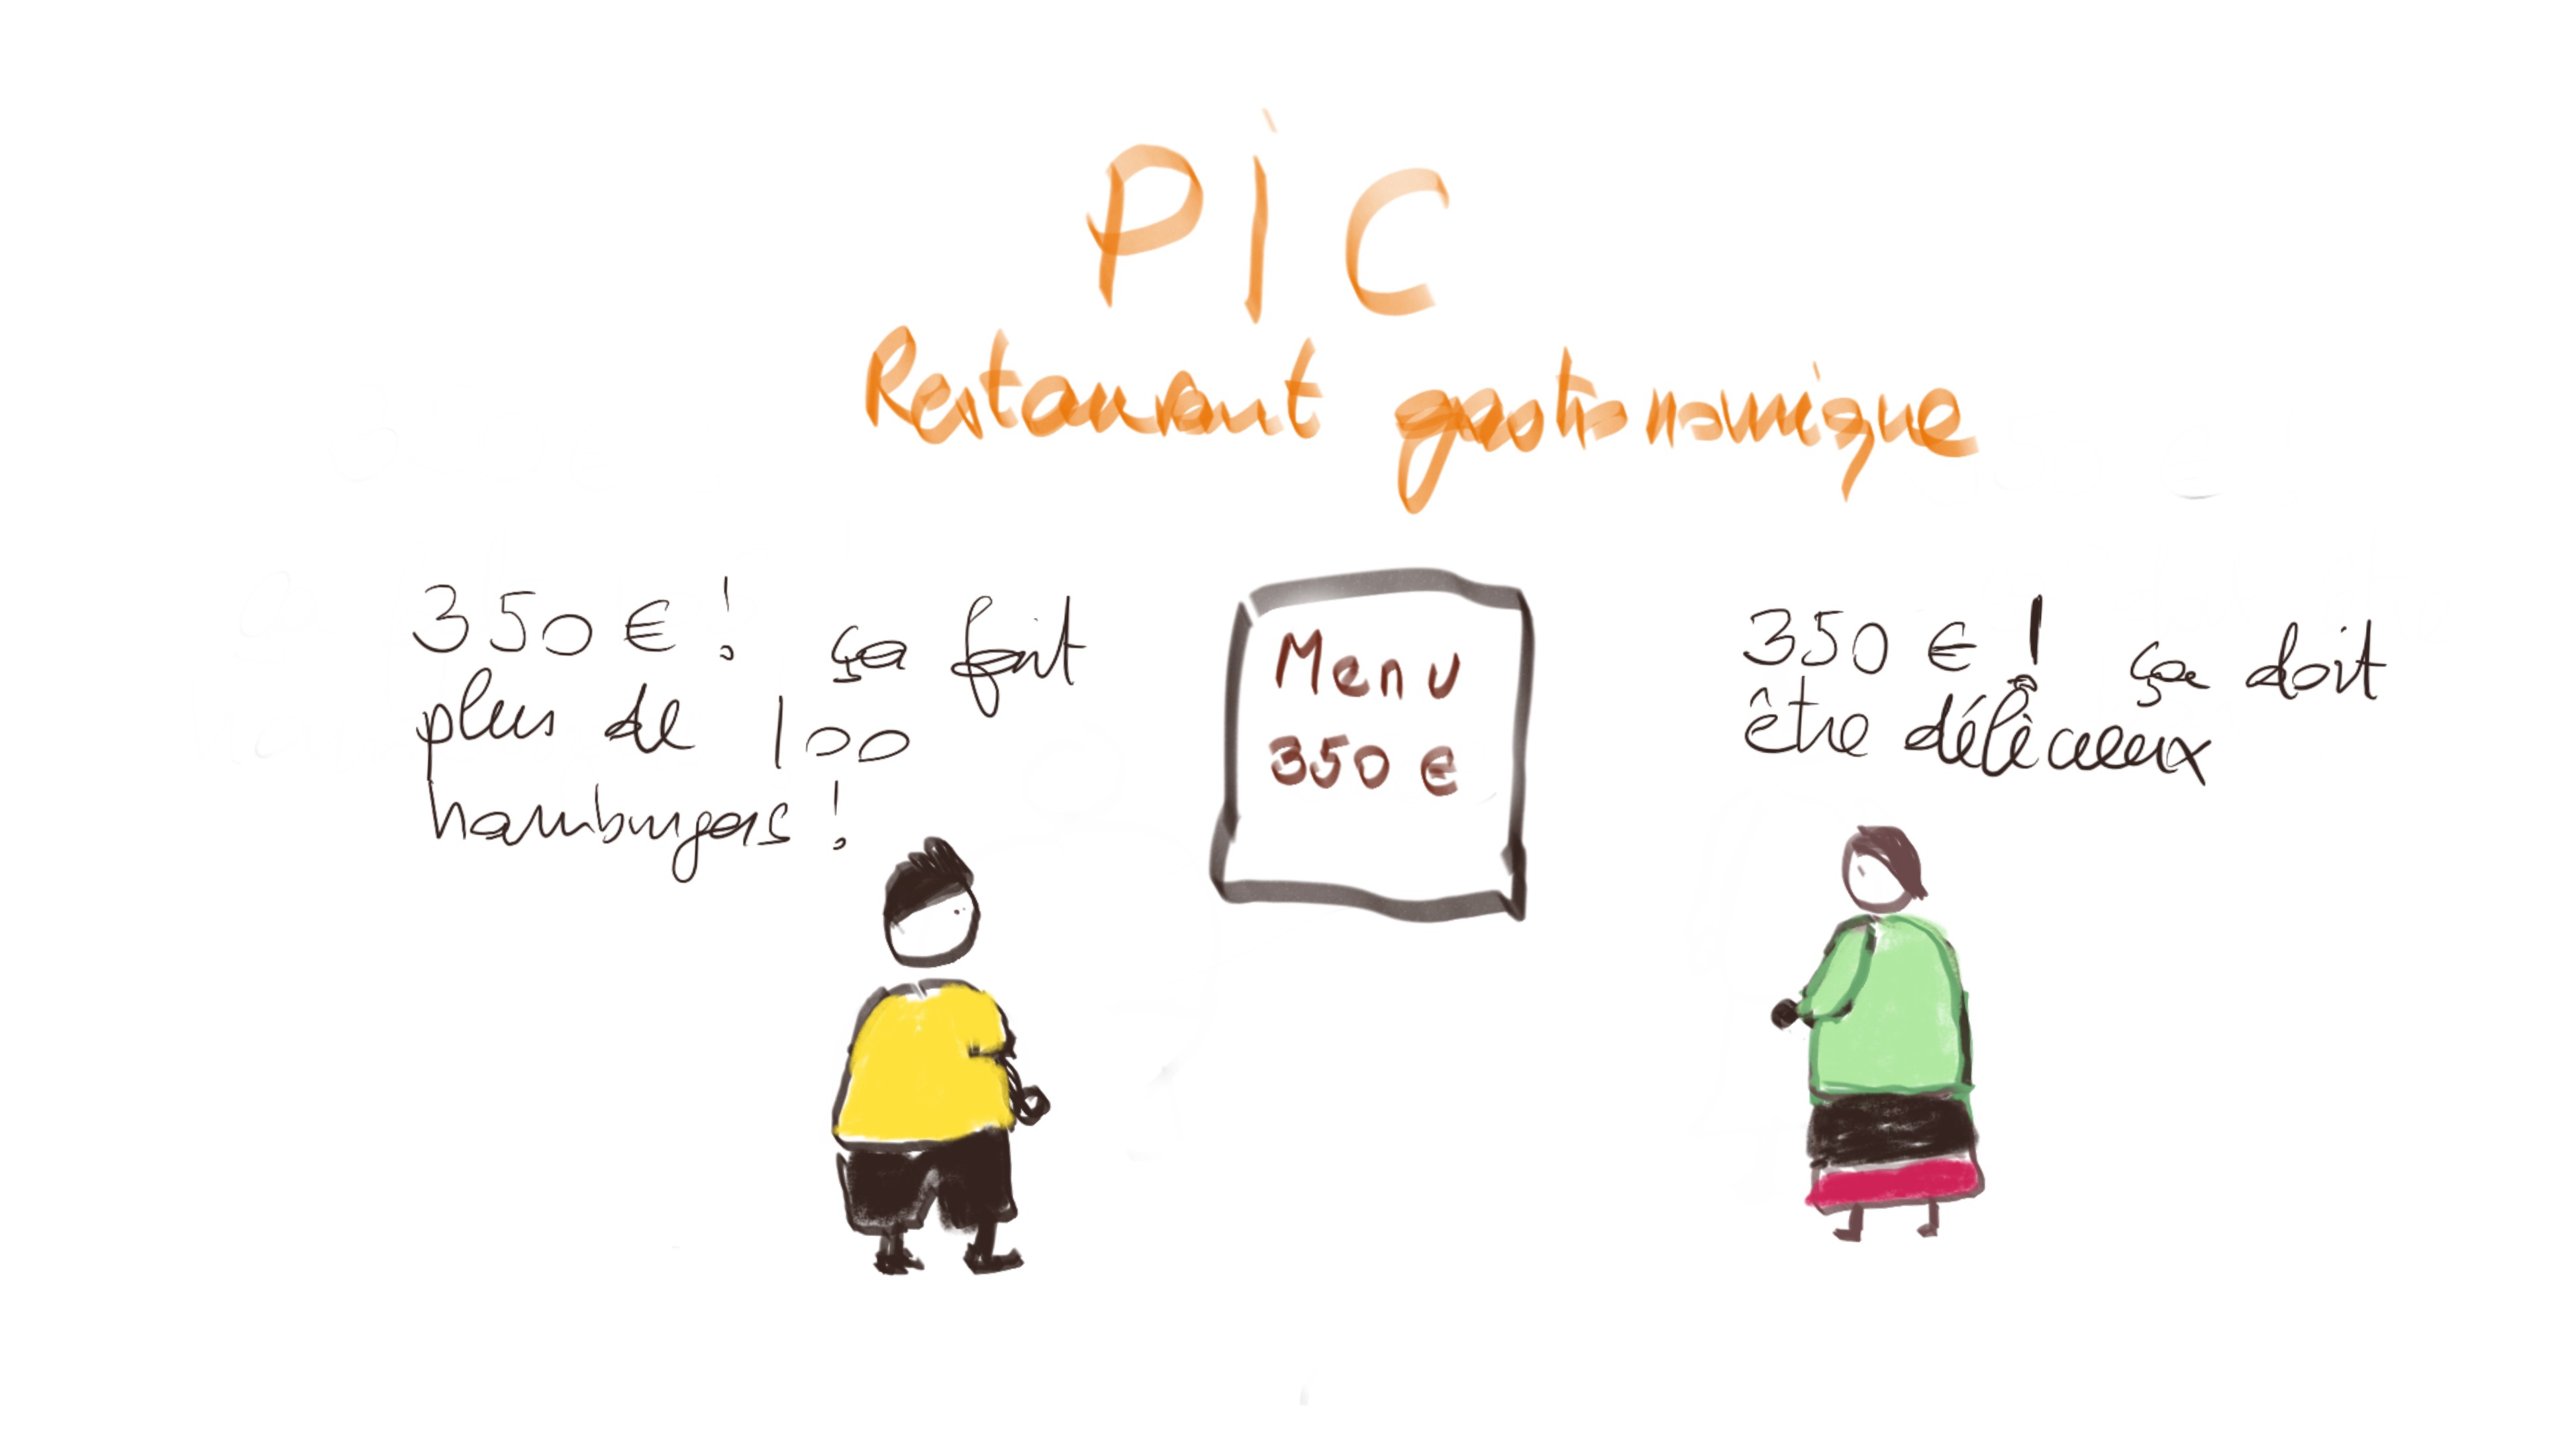 PiC
Restaurant gastronomique
350 € ! ça fait
plus de 100
hamburgers !
Menu
350 €
350 € ! ça doit
être délicieux